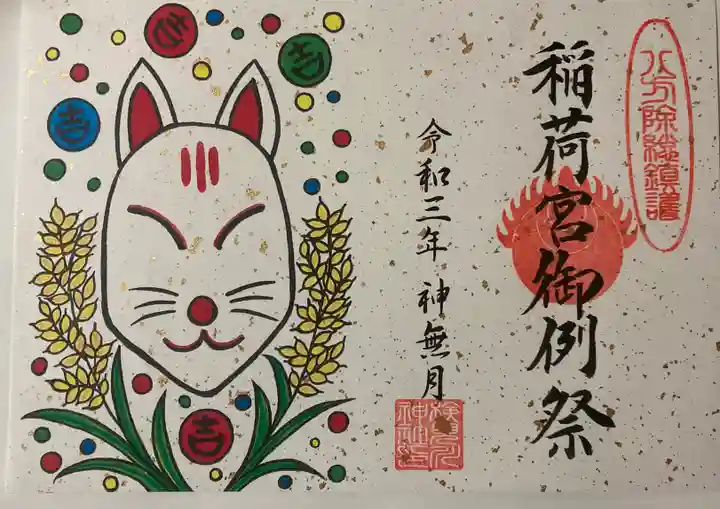 八方除総鎮護
稲荷宮御例祭
令和三年 神無月
検見川
吉
吉
吉
吉